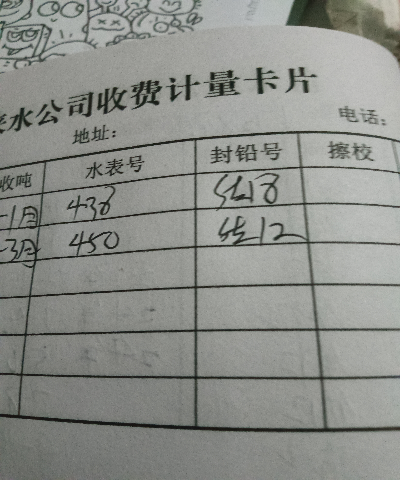 水公司收费计量卡片
地址: 电话:
收吨 水表号 封铅号 擦校
-1月 438
-3月 450